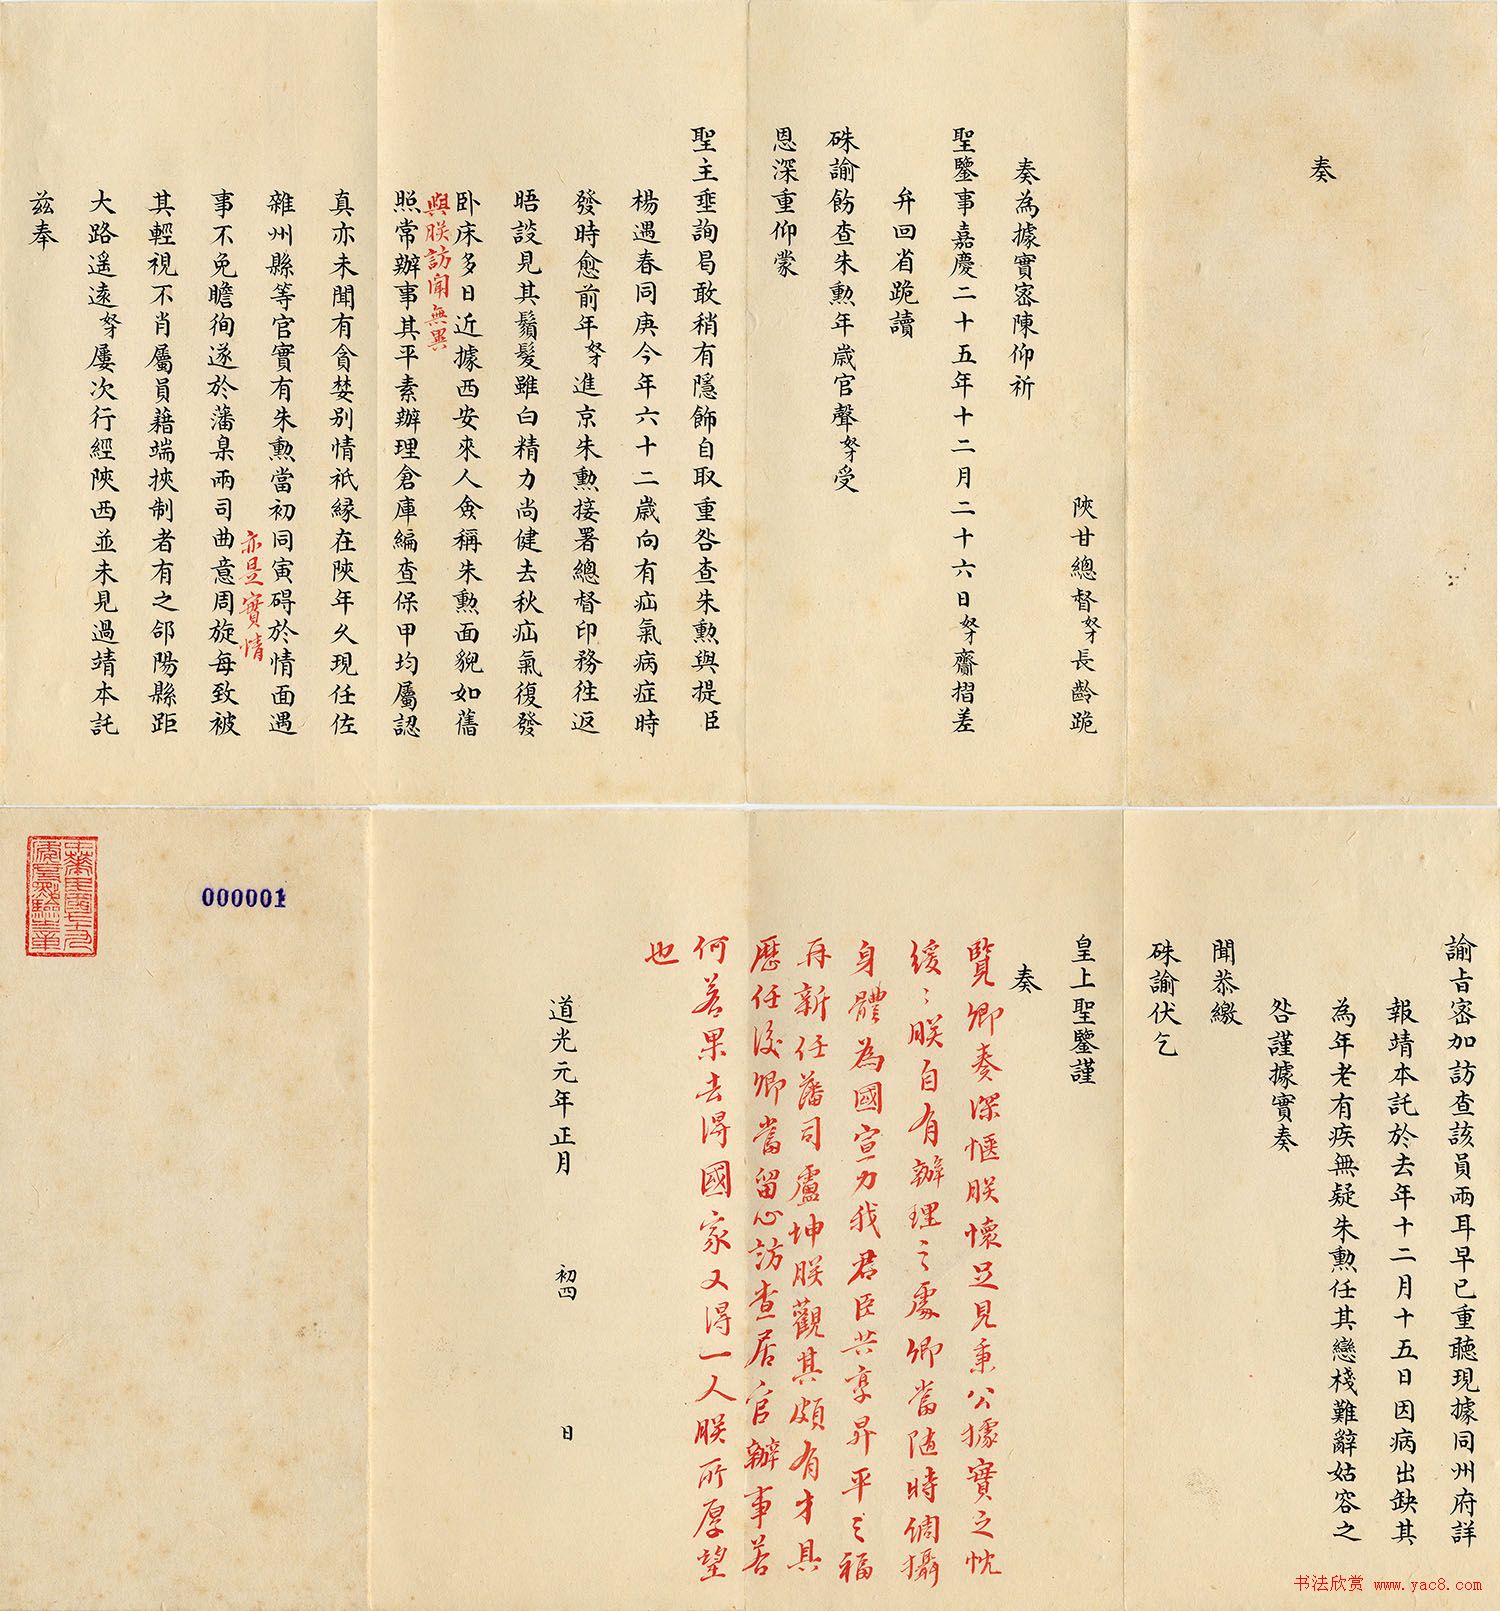 奏
陝甘總督奴才長齡跪
奏為據實密陳仰祈
聖鑒事嘉慶二十五年十二月二十六日奴才齎摺差
弁回省跪讀
硃諭飭查朱勲年歲官聲奴才受
恩深重仰蒙
聖主垂詢曷敢稍有隱飾自取重咎查朱勲與提臣
楊遇春同庚今年六十二歲向有疝氣病症時
發時愈前年奴才進京朱勲接署總督印務徃返
晤談見其鬚髮雖白精力尚健去秋疝氣復發
卧床多日近據西安來人僉稱朱勲面貌如舊
與朕訪聞無異
照常辦事其平素辦理倉庫編查保甲均屬認
真亦未聞有貪婪别情祇緣在陝年久現任佐
雜州縣等官實有朱勲當初同寅碍於情面遇
亦是實情
事不免瞻徇遂於藩臬兩司曲意周旋每致被
其輕視不肖屬員藉端挾制者有之郃陽縣距
大路遥遠奴才屢次行經陝西並未見過靖本託
兹奉
諭旨密加訪查該員兩耳早已重聽現據同州府詳
報靖本託於去年十二月十五日因病出缺其
為年老有疾無疑朱勲任其戀棧難辭姑容之
咎謹據實奏
聞恭繳
硃諭伏乞
皇上聖鑒謹
奏
覽卿奏深愜朕懷足見秉公據實之忱
緩緩朕自有辦理之處卿當随時調攝
身體為國宣力我君臣共享昇平之福
再新任藩司盧坤朕觀其頗有才具
歷任後卿當留心訪查居官辦事若
何若果去得國家又得一人朕所厚望
也
道光元年正月 初四 日
000001
书法欣赏 www.yac8.com